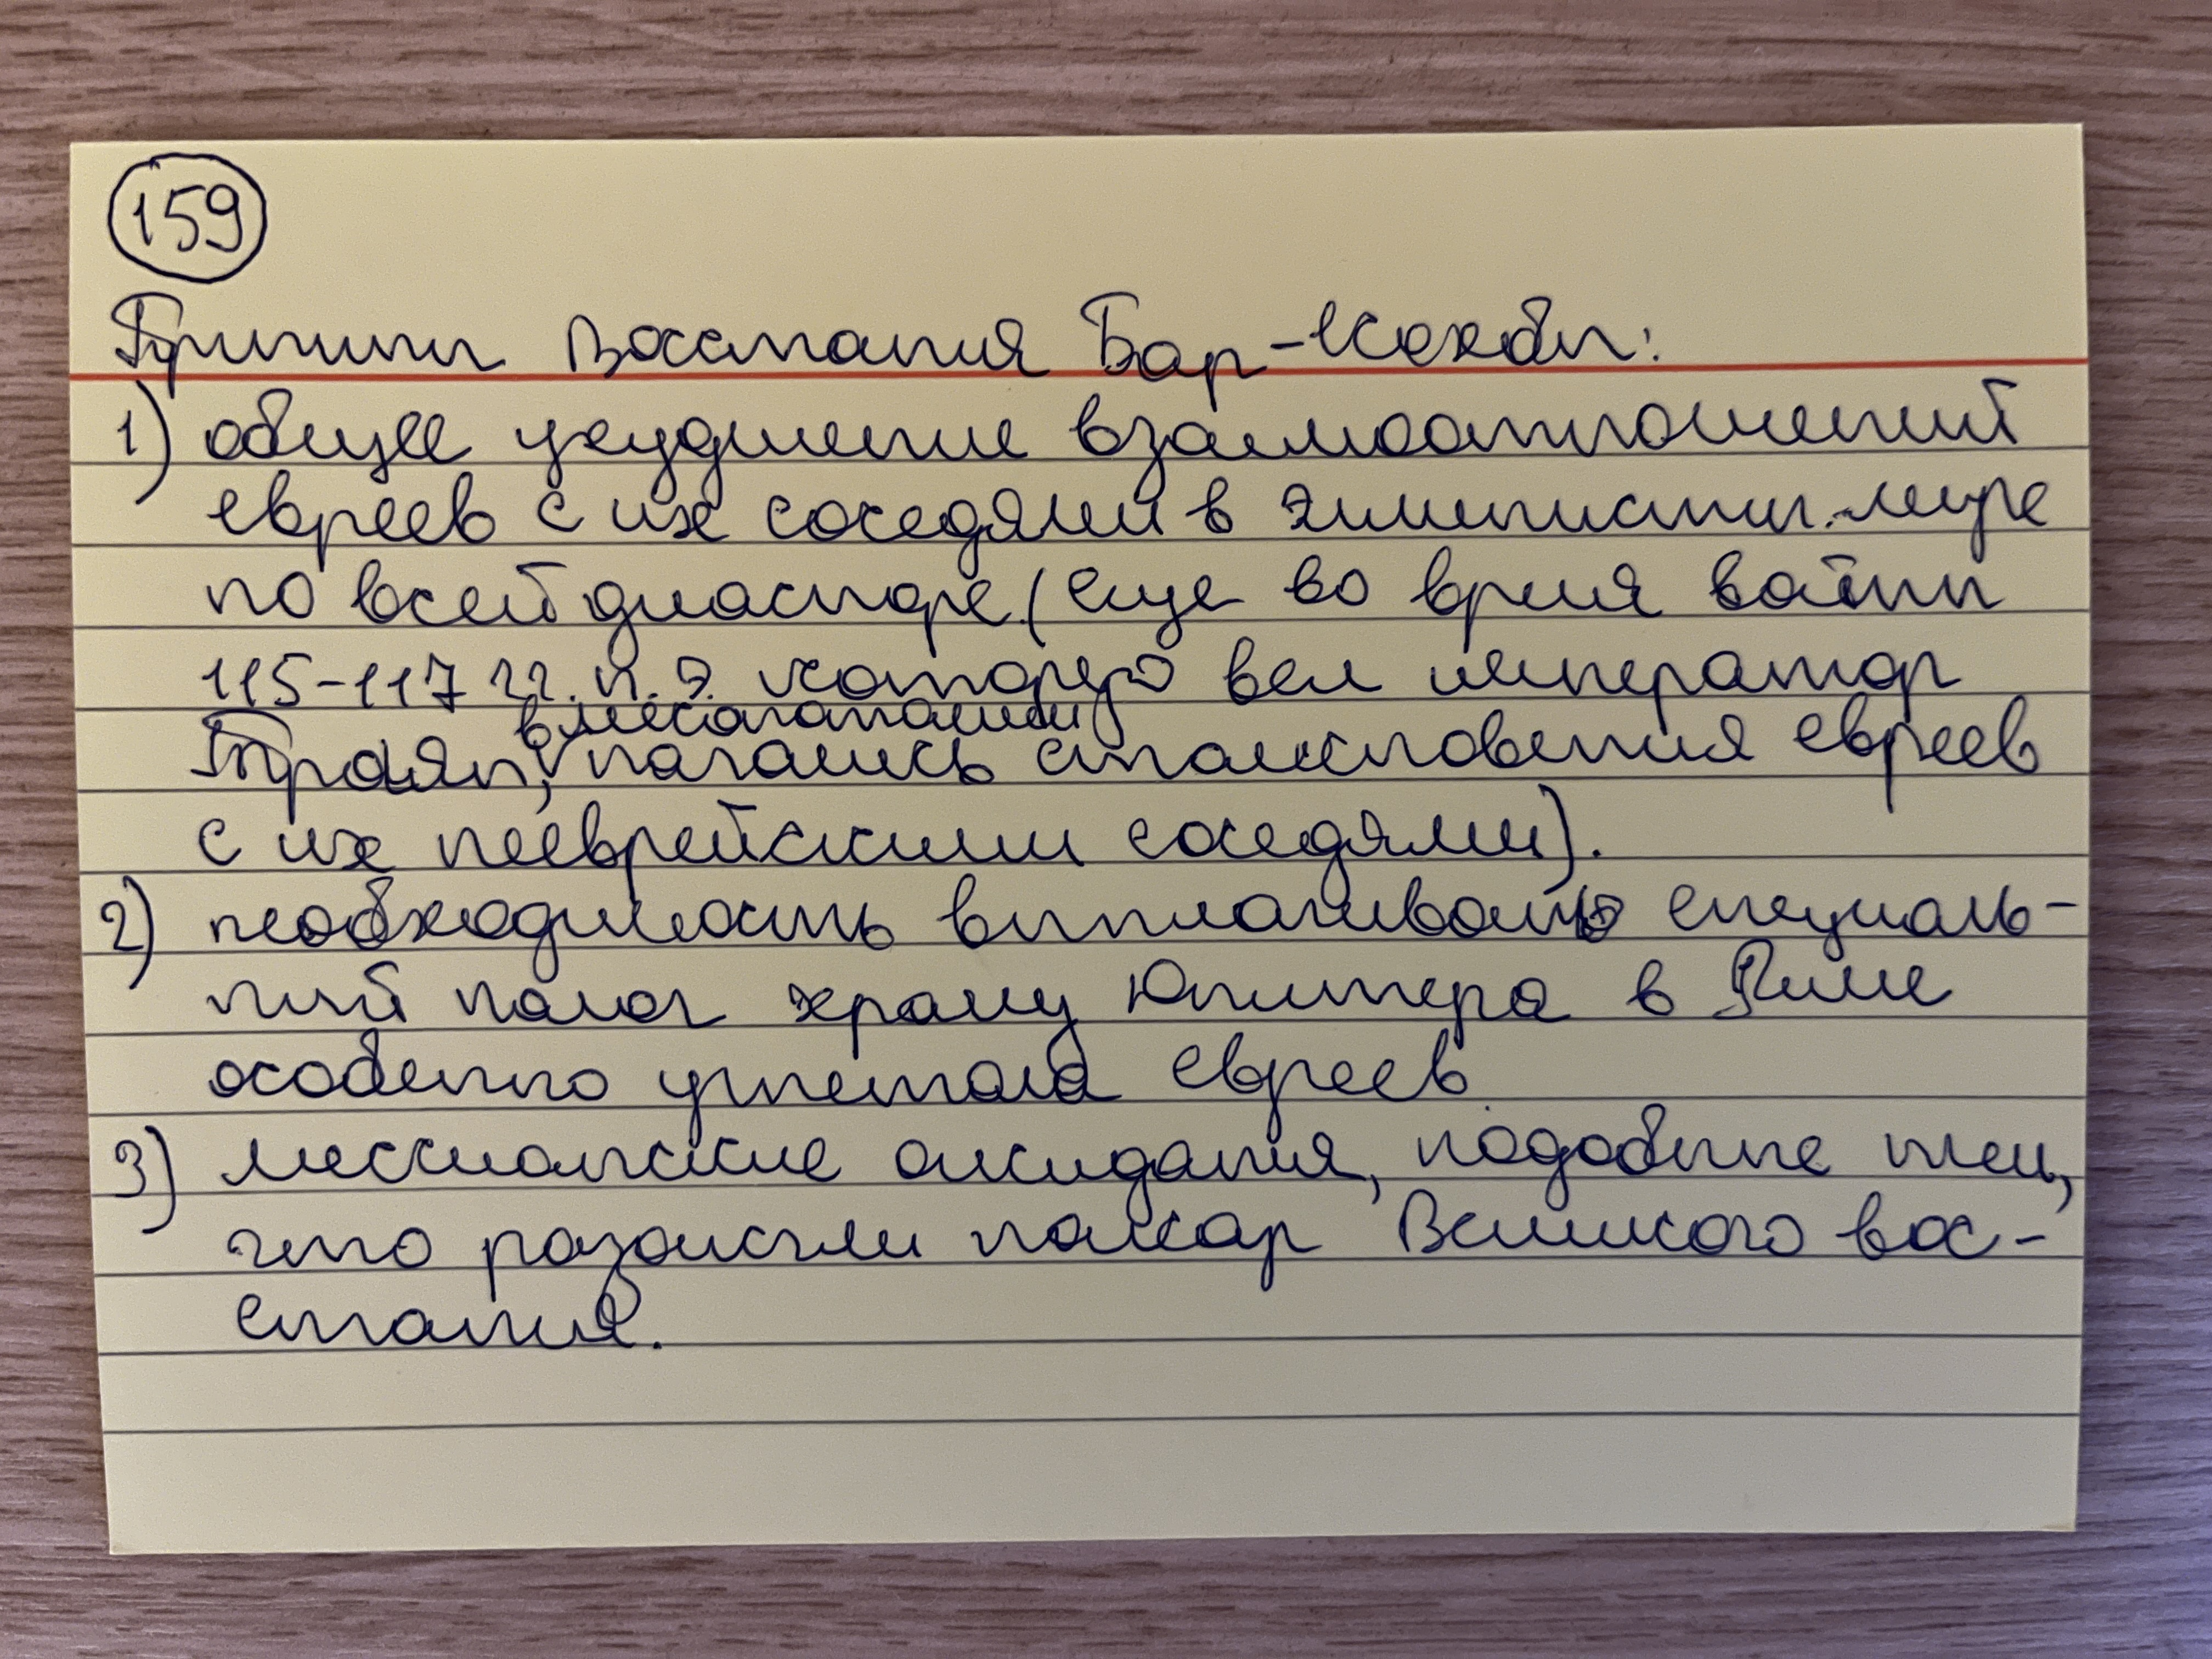 159
Причины Восстания Бар-Кохбы:
1) общее ухудшение взаимоотношений
евреев с их соседями в эллинистич. мире
по всей диаспоре (еще во время войны
115-117 гг. н.э. которую вел император
в Месопотамии
Траян, начались столкновения евреев
с их нееврейскими соседями).
2) необходимость выплачивать специаль-
ный налог храму Юпитера в Риме
особенно угнетала евреев.
3) мессианские ожидания, подобные тем,
что разожгли пожар Великого вос-
стания.